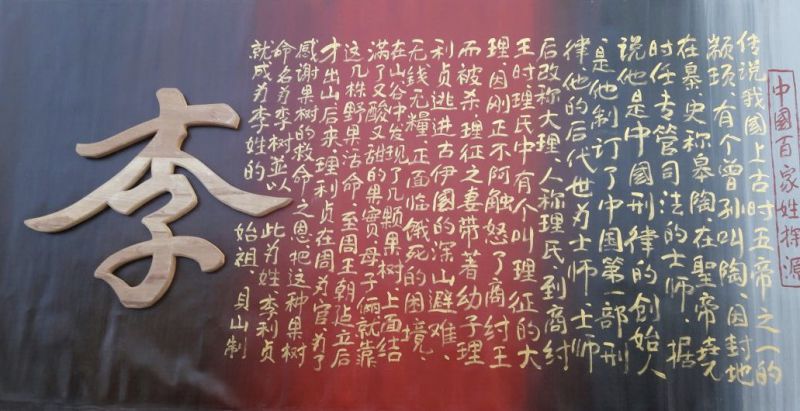 中國百家姓探源
传说我國上古时五帝之一的
颛顼、有个曾孙叫陶、因封地
在皋史称皋陶、在聖帝尧
时任专管司法的士师、据
说他是中國刑律的创始人
是他制订了中国第一部刑
律他的后代世为士师 士师
后改称大理、人称理氏、到商纣
王时理氏中有个叫理征的大
理、因刚正不阿触怒了商纣王
而被杀理征之妻带著幼子理
利贞逃进古伊國的深山避难、
无线无糧、正面临饿死的困境、
在山谷中发现了几颗果树上面结
满了又酸又甜的果實、母子俩就靠
这几株野果活命、至周王朝建立后
才出山后来理利贞在周为官为了
感谢果树的救命之恩把这种果树
命名为李树並以此为姓李利贞
就成为李姓的始祖、貝山制
李